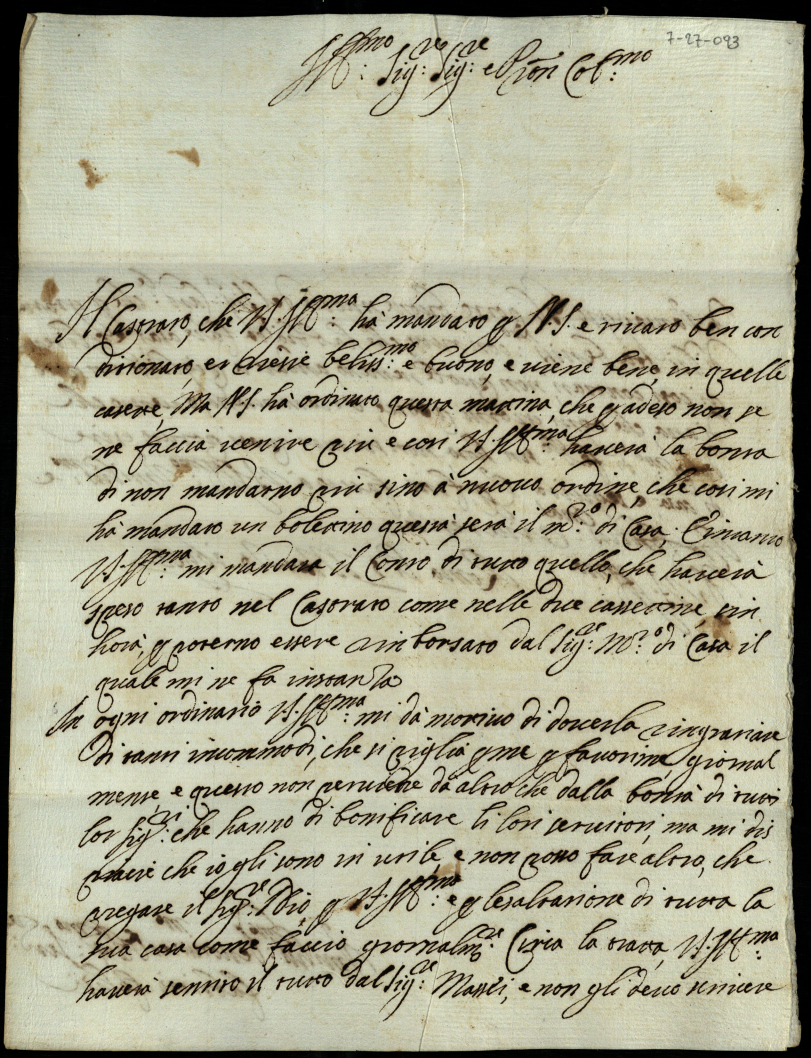 7-27-093
Ill:mo Sig:re Sig:re e Pron Col:mo
Il Castrato, che V.S. Ill:ma hà mandato p N.S. e rivato ben con
ditionato, et è belliss:mo e buono, e viene bene, in quelle
casette, Ma N.S. hà ordinato questa mattina, che p adeso non se
ne faccia venire più e così V.S. Ill:ma haverà la bontà
di non mandarno più sino à nuovo ordine, che così mi
hà mandato un bolettino questa sera il M:ro di Casa. Intanto
V.S. Ill:ma mi mandarà il Conto di tutto quello, che haverà
speso tanto nel Castrato come nelle due cassettine, sin
hora, p poterno essere rinborsato dal Sig:re M:ro di Casa il
quale mi ne fa instanza
In ogni ordinario V.S. Ill:ma mi dà motivo di doverla ringratiare
di tanti incommodi, che si piglia p me p favorirmi giornal
mente, e questo non procede da altro che dalla bontà di tutti
lor Sig:ri che hanno di bonificare li lori servitori, ma mi dis
piace che io gli sono inutile, e non posso fare altro, che
pregare il Sig:re Idio, p V.S. Ill:ma e p l'esaltatione di tutta la
sua casa come faccio giornalm:te Circa la tratta, V.S. Ill:ma
haverà sentito il tutto dal Sig:re Massei, e non gli devo scrivere